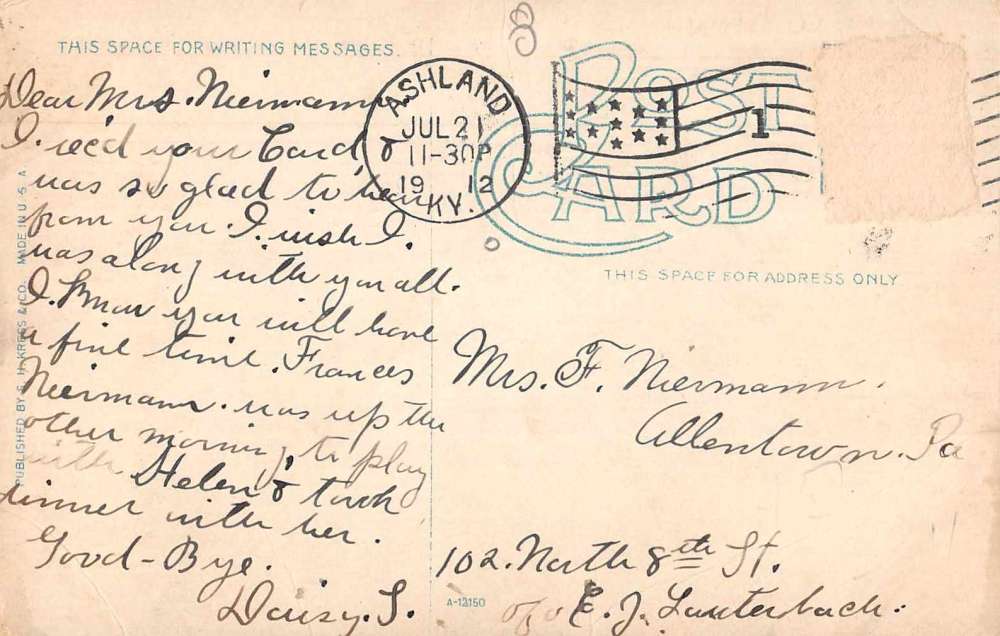 THIS SPACE FOR WRITING MESSAGES.
Dear Mrs. Niermann
I. rec'd your Card &
was so glad to hear
from you. I. wish I.
was along with you all.
I. Know you will have
a fine time. Frances
Niermann. was up the
other morning to play
with Helen & took
dinner with her.
Good-Bye.
Daisy. S.
PUBLISHED BY S. H. KRESS & CO. MADE IN U. S. A.
ASHLAND
JUL 21
11-30P
19 12
KY.
1
POST
CARD
THIS SPACE FOR ADDRESS ONLY
Mrs. F. Niermann.
Allentown. Pa
102. North 8th St.
c/o E. J. Lauterbach.
A-12150